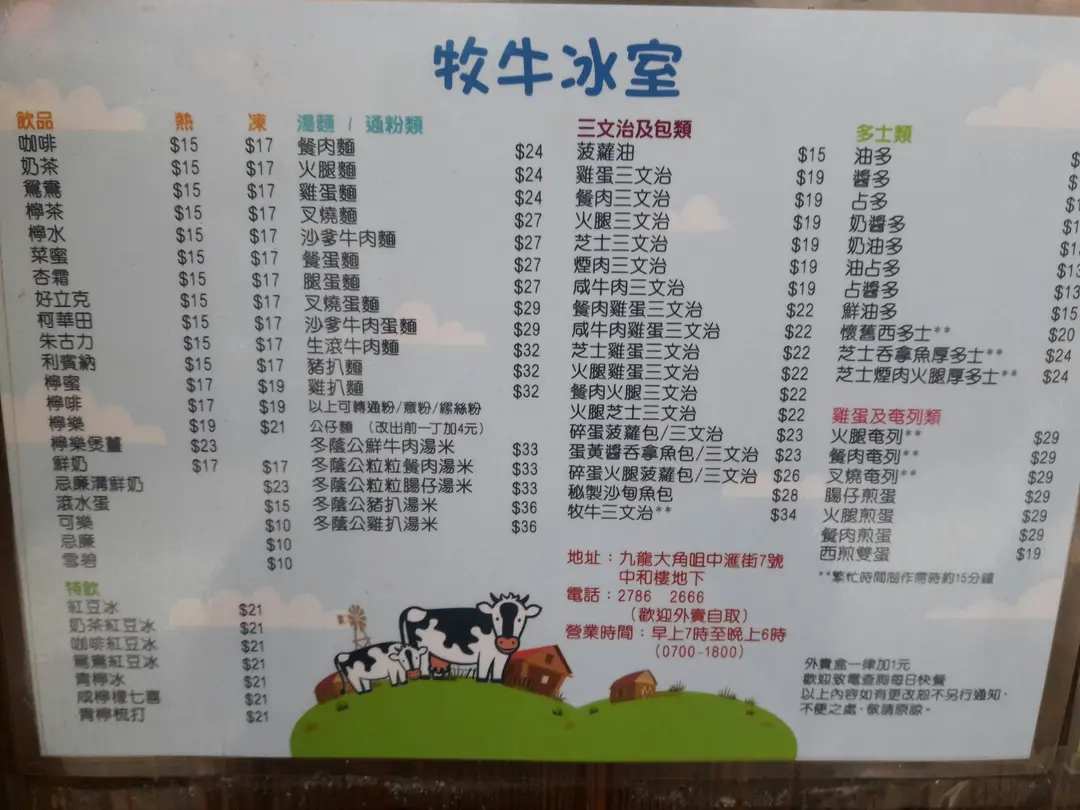 牧牛冰室
飲品 熱 凍
咖啡 $15 $17
奶茶 $15 $17
鴛鴦 $15 $17
檸茶 $15 $17
檸水 $15 $17
菜蜜 $15 $17
杏霜 $15 $17
好立克 $15 $17
柯華田 $15 $17
朱古力 $15 $17
利賓納 $15 $17
檸蜜 $17 $19
檸啡 $17 $19
檸樂 $19 $21
檸樂煲薑 $23
鮮奶 $17 $17
忌廉溝鮮奶 $23
滾水蛋 $15
可樂 $10
忌廉 $10
雪碧 $10
特飲
紅豆冰 $21
奶茶紅豆冰 $21
咖啡紅豆冰 $21
鴛鴦紅豆冰 $21
青檸冰 $21
咸檸檬七喜 $21
青檸梳打 $21
湯麵 / 通粉類
餐肉麵 $24
火腿麵 $24
雞蛋麵 $24
叉燒麵 $27
沙爹牛肉麵 $27
餐蛋麵 $27
腿蛋麵 $27
叉燒蛋麵 $29
沙爹牛肉蛋麵 $29
生滾牛肉麵 $32
豬扒麵 $32
雞扒麵 $32
以上可轉通粉/意粉/螺絲粉
公仔麵 (改出前一丁加4元)
冬蔭公鮮牛肉湯米 $33
冬蔭公粒粒餐肉湯米 $33
冬蔭公粒粒腸仔湯米 $33
冬蔭公豬扒湯米 $36
冬蔭公雞扒湯米 $36
三文治及包類
菠蘿油 $15
雞蛋三文治 $19
餐肉三文治 $19
火腿三文治 $19
芝士三文治 $19
煙肉三文治 $19
咸牛肉三文治 $19
餐肉雞蛋三文治 $22
咸牛肉雞蛋三文治 $22
芝士雞蛋三文治 $22
火腿雞蛋三文治 $22
餐肉火腿三文治 $22
火腿芝士三文治 $22
碎蛋菠蘿包/三文治 $23
蛋黃醬吞拿魚包/三文治 $23
碎蛋火腿菠蘿包/三文治 $26
秘製沙甸魚包 $28
牧牛三文治** $34
地址：九龍大角咀中滙街7號
中和樓地下
電話：2786 2666
(歡迎外賣自取)
營業時間：早上7時至晚上6時
(0700-1800)
多士類
油多
醬多
占多
奶醬多
奶油多
油占多 $13
占醬多 $13
鮮油多 $15
懷舊西多士** $20
芝士吞拿魚厚多士** $24
芝士煙肉火腿厚多士** $24
雞蛋及奄列類
火腿奄列** $29
餐肉奄列** $29
叉燒奄列** $29
腸仔煎蛋 $29
火腿煎蛋 $29
餐肉煎蛋 $29
西煎雙蛋 $19
**繁忙時間制作需時約15分鐘
外賣盒一律加1元
歡迎致電查詢每日快餐
以上內容如有更改恕不另行通知，
不便之處，敬請原諒。